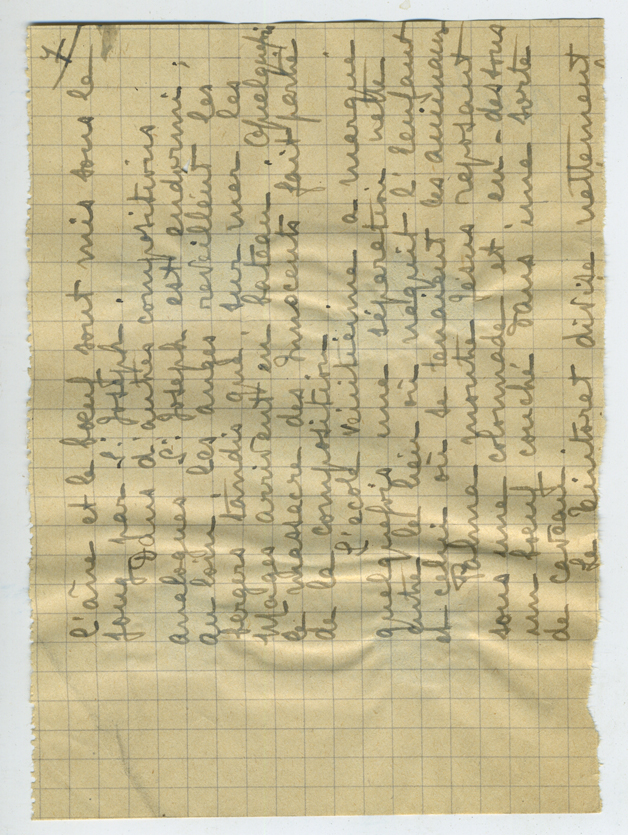 7
l'âne et le bœuf sont mis sous le
joug par S. Joseph.
Dans d'autres compositions
analogues S. Joseph est endormi;
au loin les anges reveillent les
bergers tandis que sur mer les
Mages arrivent en bateau. Quelquefois
le massacre des Innocents fait partie
de la composition.
L'ecole Vénitienne a marque
quelquefois une séparation nette
entre le lieu où naquit l'Enfant
et celui où se tenaient les animaux
Palma montre Jésus reposant
sous une colonnade et en-dessous
un bœuf couché dans une sorte
de caveau.
Le Tintoret divise nettement